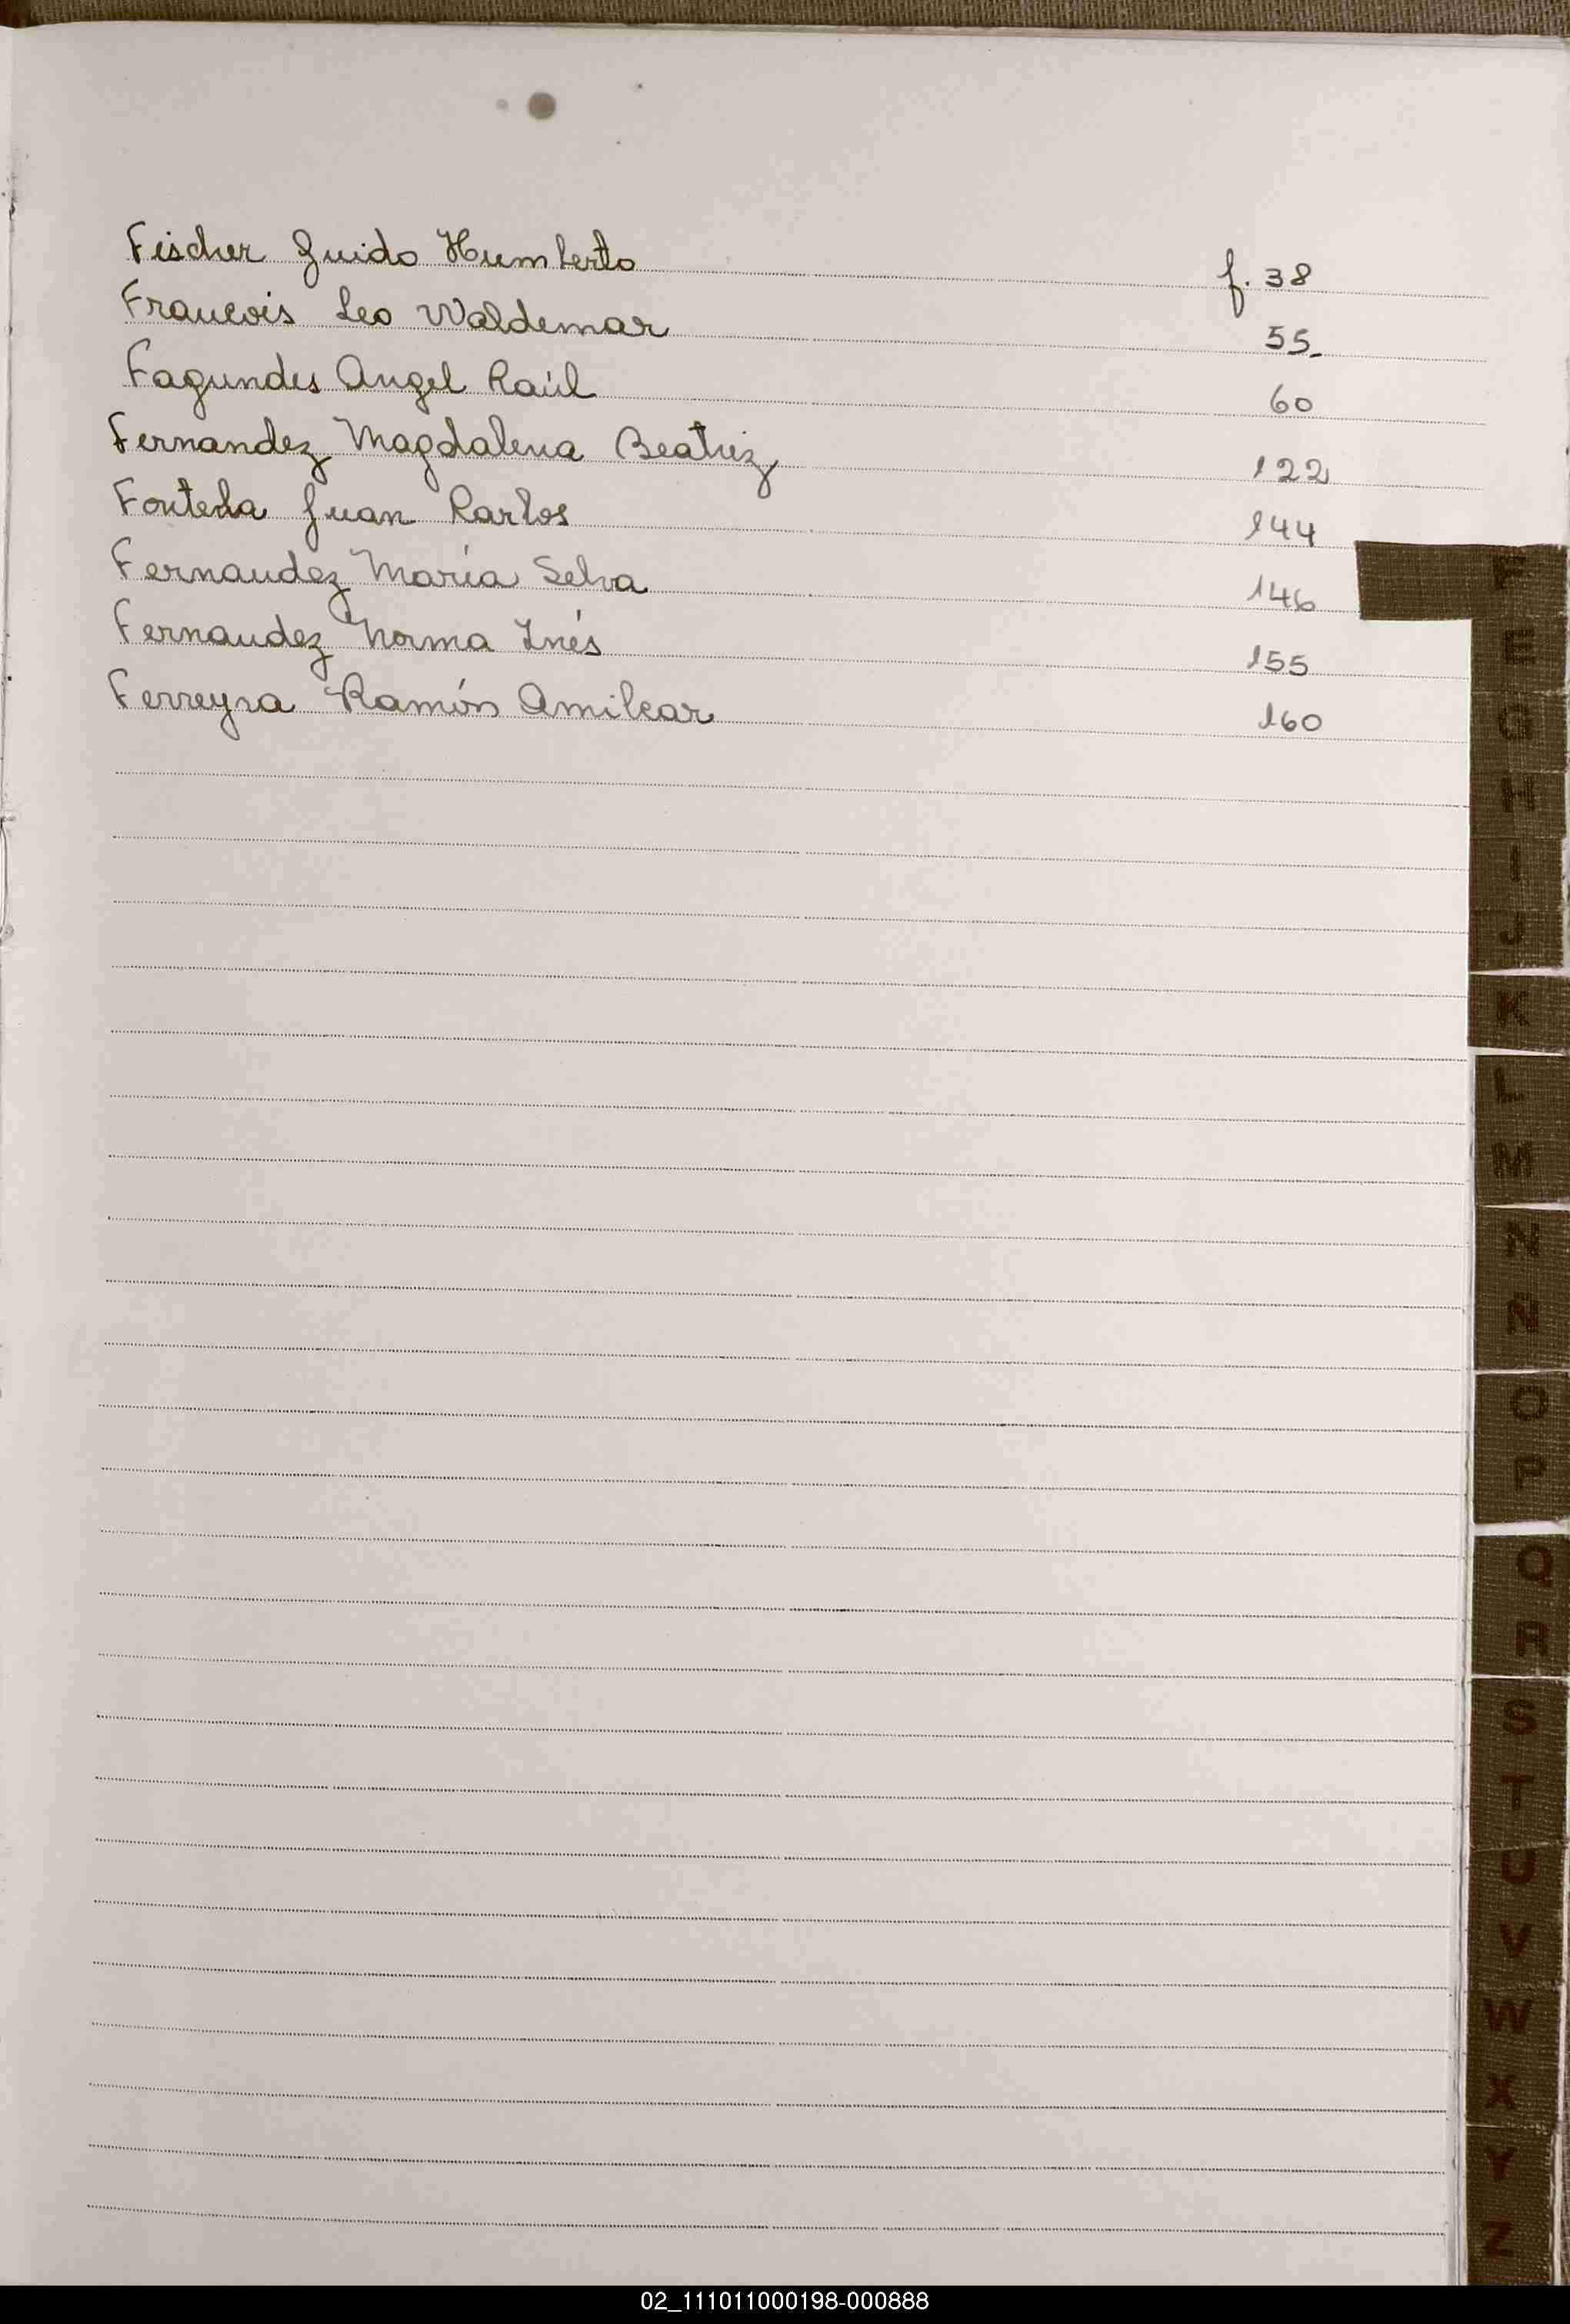 Fischer Guido Humberto f. 38
Francois Leo Waldemar 55
Fagundes Angel Raúl 60
Fernandez Magdalena Beatriz 122
Juan Carlos 144
Fernandez María Selva 146
Fernandez Norma Inés 155
Ferreyra Ramón Amilcar 160
F
E
G
H
I
J
K
L
M
N
N
O
P
Q
R
S
T
U
V
W
X
Y
Z
02_111011000198-000888